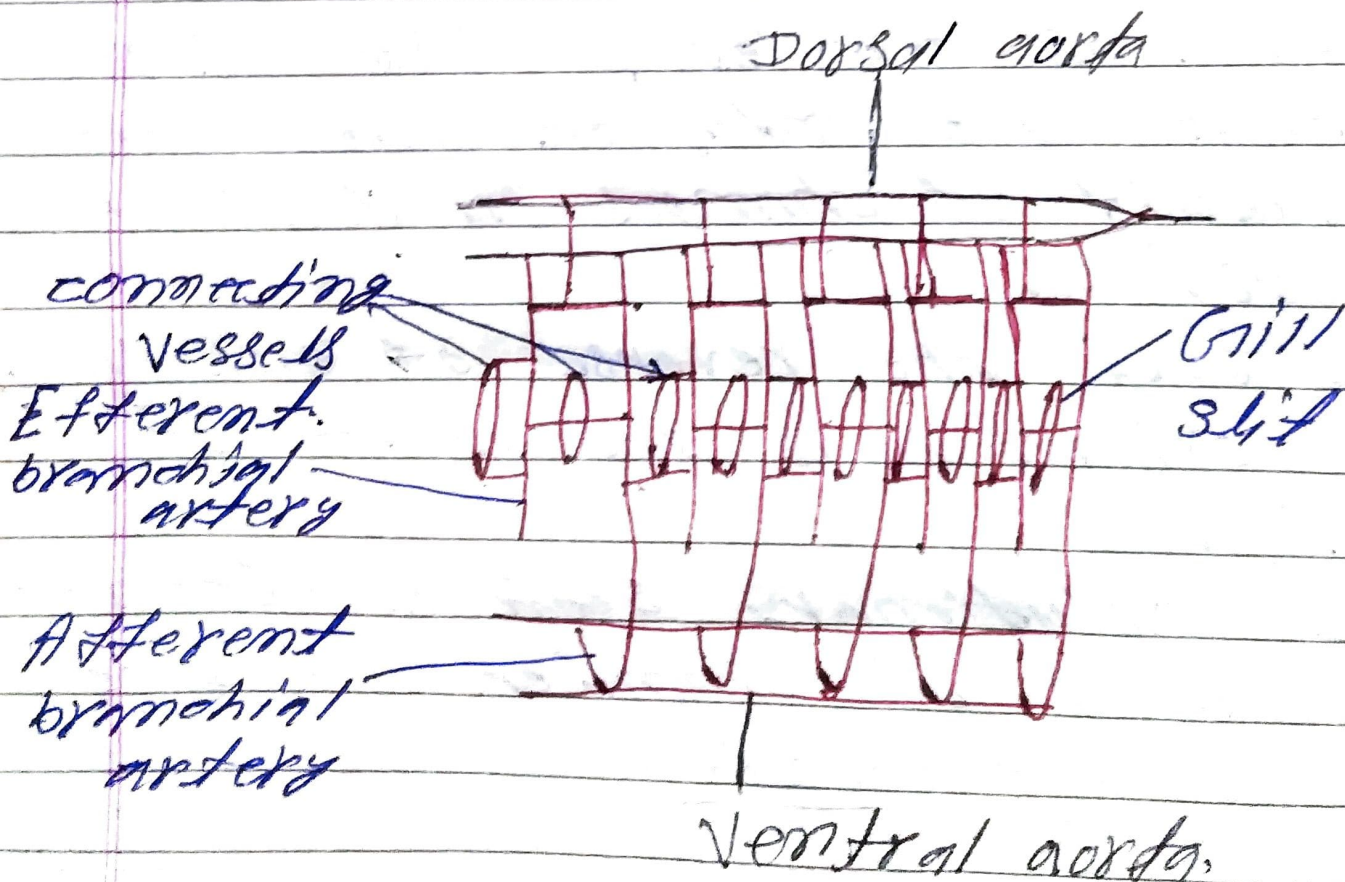 Dorsal aorta
connecting
vessels
Gill
slit
Efferent.
branchial
artery
Afferent
branchial
artery
Ventral aorta.